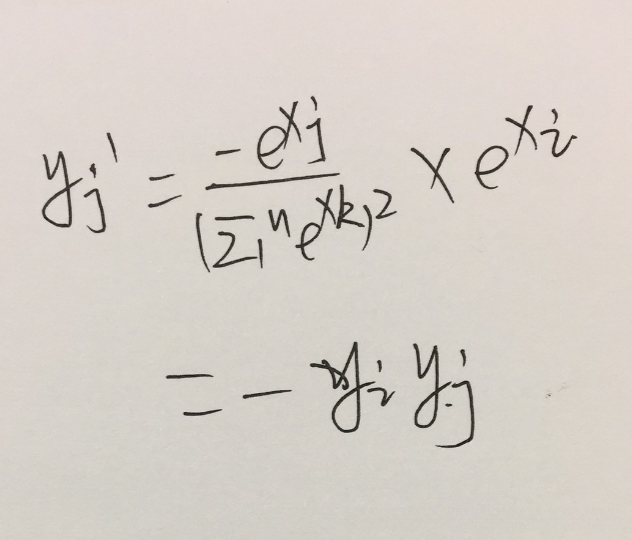 yⱼ' = -e^{xⱼ} / (Σ₁ⁿ e^{xₖ})² × e^{xᵢ}
= - yᵢ yⱼ